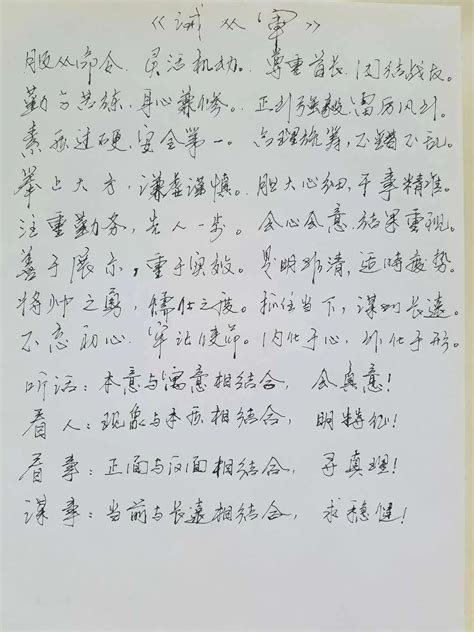 《诫从军》
服从命令、灵活机动。尊重首长、团结战友。
勤学苦练，身心兼修。正到强毅，雷厉风行。
素质过硬，安全第一。合理统筹，不错不乱。
举止大方，谦虚谨慎。胆大心细，干事精准。
注重勤务，先人一步。会心会意，结果重现。
善于展示，重于实效。是明非清，适时疲势。
将帅之勇，儒仕之度。抓住当下，谋划长远。
不忘初心，牢记使命。内化于心，外化于形。
听话：本意与寓意相结合，会真意！
看人：现象与本质相结合，明特征！
看事：正面与反面相结合，寻真理！
谋事：当前与长远相结合，求稳健！